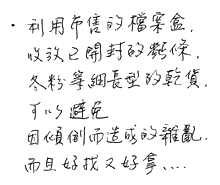 ・利用市售的檔案盒,
收放已開封的麵條,
冬粉等細長型的乾貨,
可以避免
因傾倒而造成的雜亂,
而且好找又好拿....